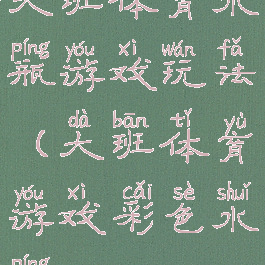 大班体育水
píng yóu xì wán fǎ
瓶游戏玩法
dà bān tǐ yù
(大班体育
yóu xì cǎi sè shuǐ
游戏彩色水
píng